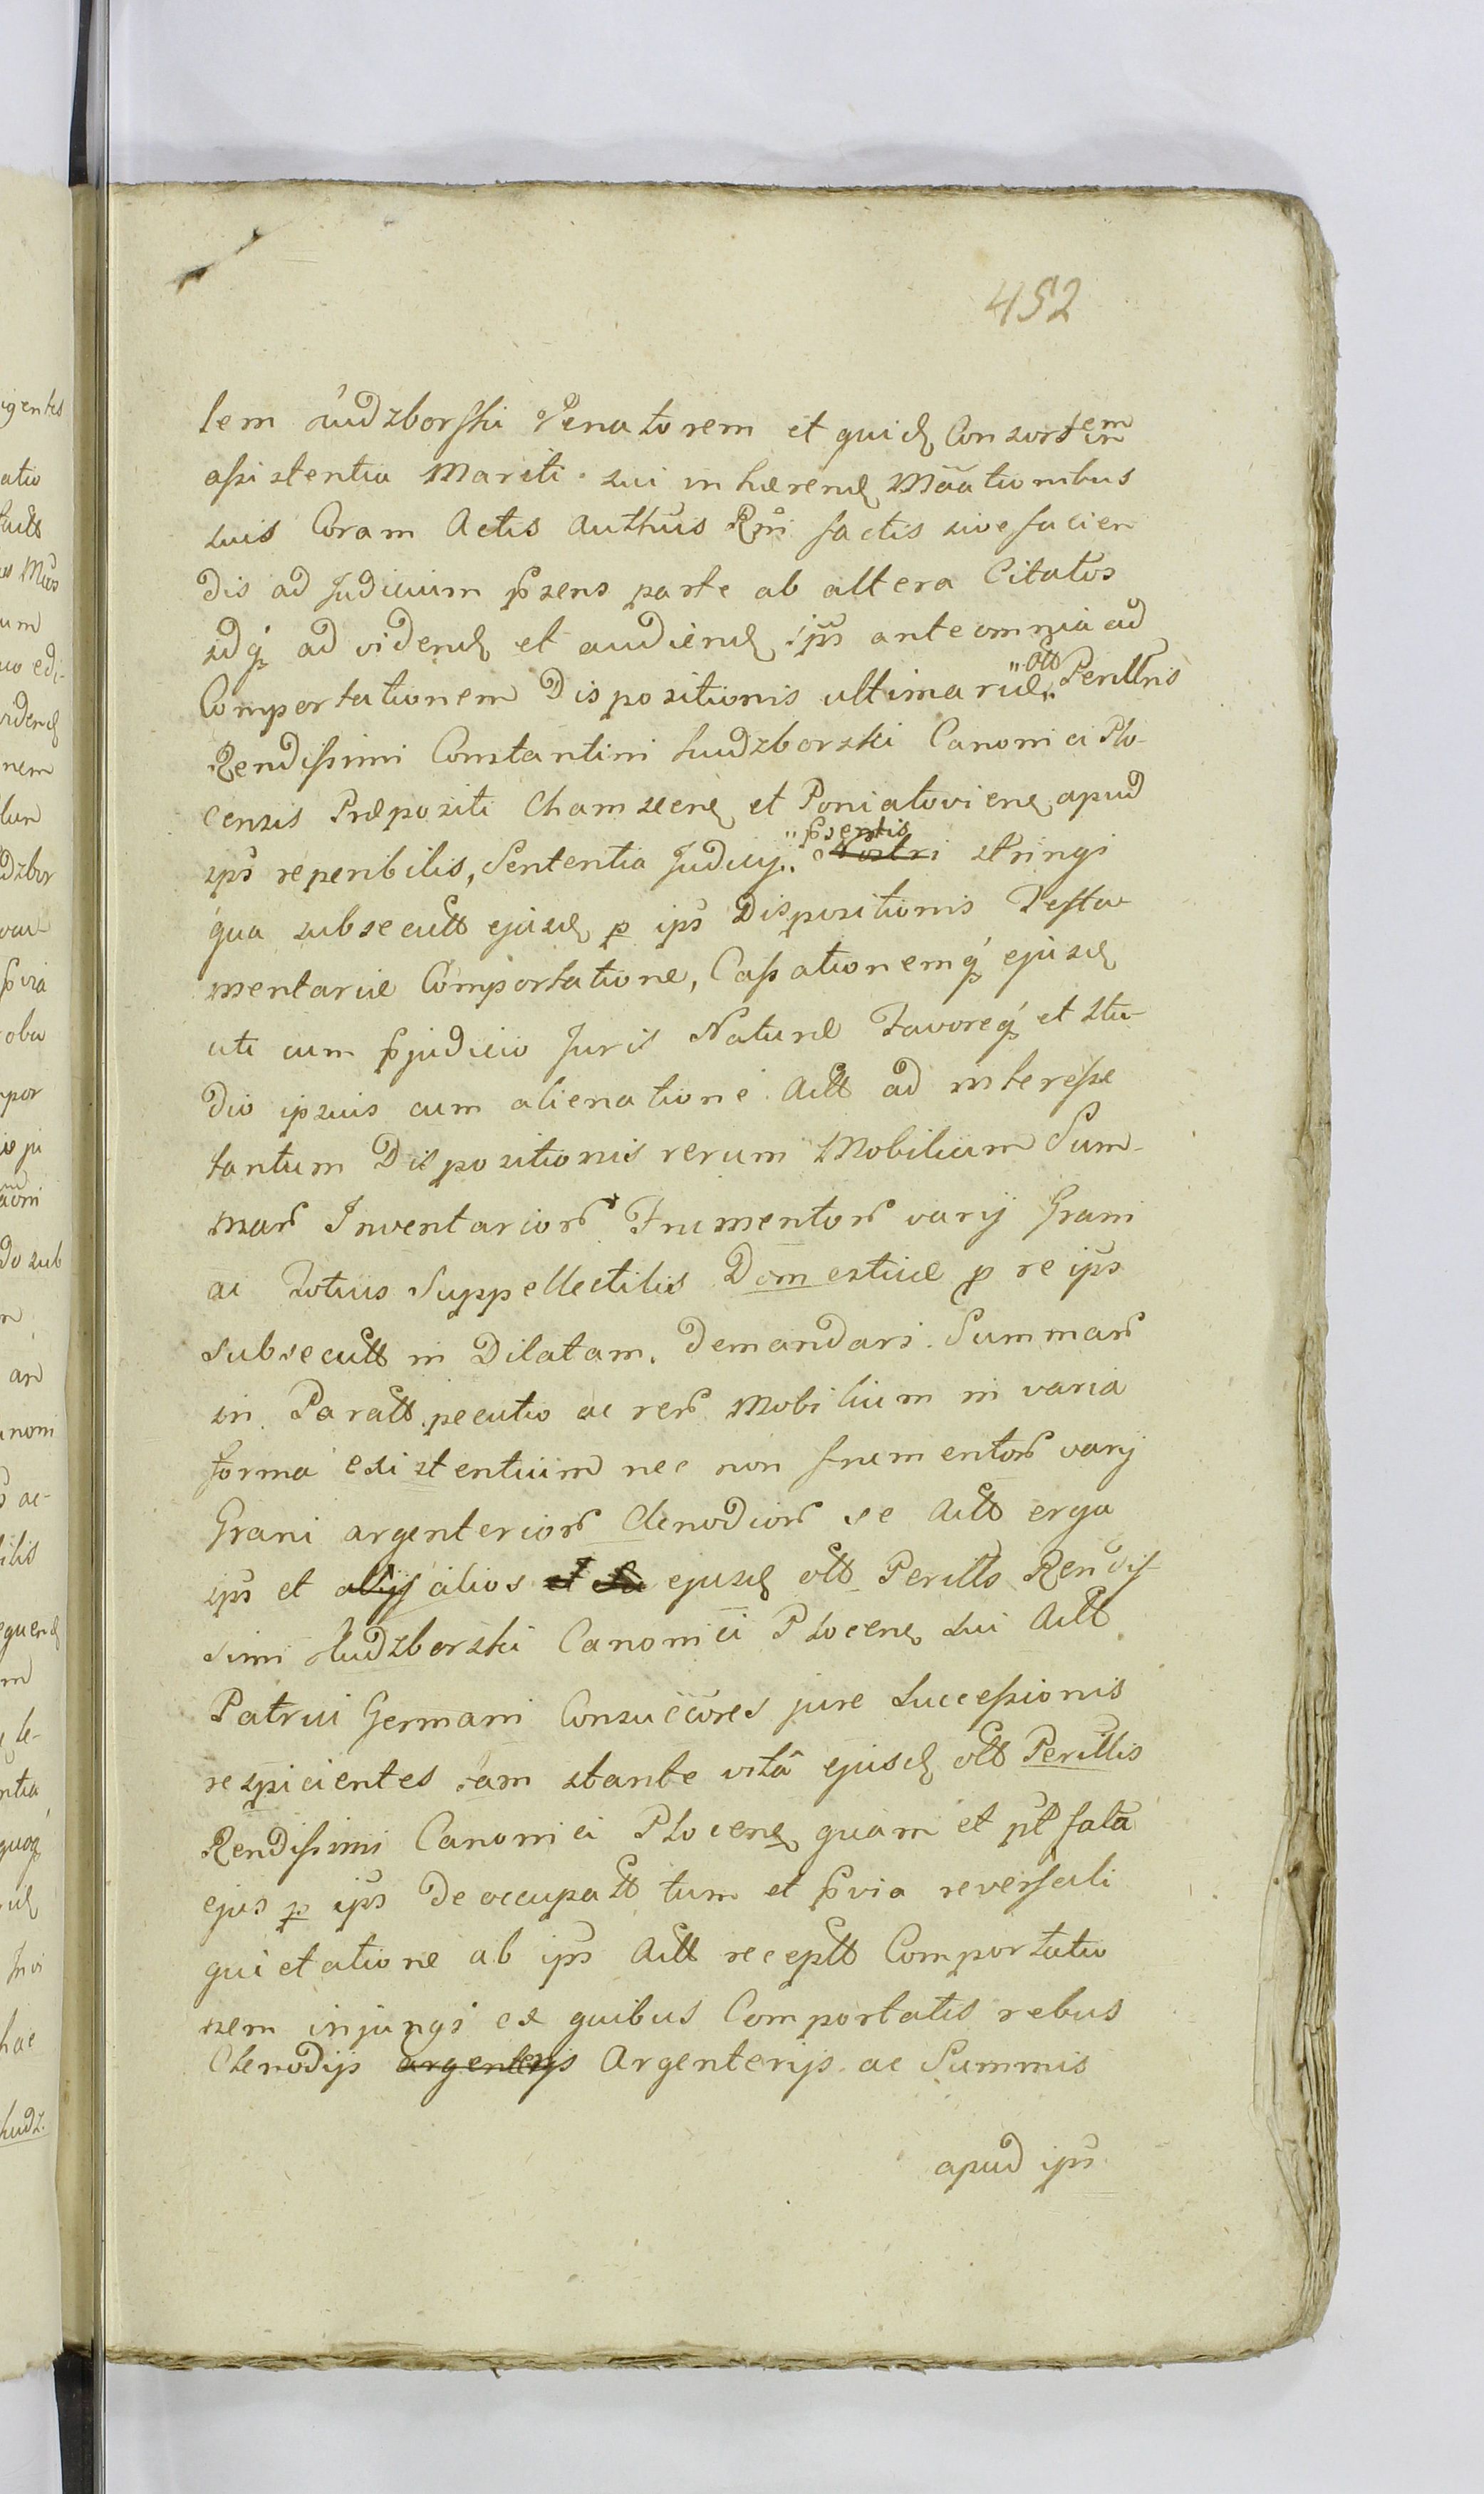 452
lem Ludzborski Venatorem et quid Consortem
assistentia Mariti sui inhærend Mãationibus
suis Coram Actis Authûs Rm̃i factis sive facien
dis ad Judicium p̃sens parte ab altera Citatos
idq̃ ad vidend et audiend ip̃s ante omnia ad
Comportationem Dispositionis ultimariæ " olt " Perillris
Rendissimi Constantini Ludzborski Canonici Plo-
censis Præpositi Chamscen et Poniatovien apud
ip̃s reperibilis, Sententia Judicij " p̃sentis Nostri stringi
qua subsecutt ejusd p ip̃s Dispositionis Testa-
mentariæ Comportatione, Cassationemq̃ ejusd
uti cum p̃judicio Juris Naturæ Favoreq̃ et Stu-
dio ipsius cum alienatione Actt ad interesse
tantum Dispositionis rerum Mobilium Sum-
mar̃ Inventarior̃ Frumentor̃ varij Grani
ac totius Suppellectilis Domesticæ p re ip̃s
subsecutt in Dilatam. Demandari. Summar̃
in Paratt peculio ac rer̃ Mobilium in varia
forma existentium nec non frumentor̃ varij
Grani argenterior̃ Clenodior̃ se Actt erga
ip̃s et alijs alios et ejusd olt Perills Rendis-
simi Ludzborski Canonici Plocen sui Actt
Patrui Germani Consuccores jure Successionis
respicientes tam stante vitâ ejusd olt Perillis
Rendissimi Canonici Plocen quam et pt fata
ejus p ip̃s deoccupatt tum et p̃via reversali
quietatione ab ip̃s Actt receptt Comportatio
nem injungi ex quibus Comportatis rebus
Clenodijs argenterijs Argenterijs ac Summis
apud ip̃s